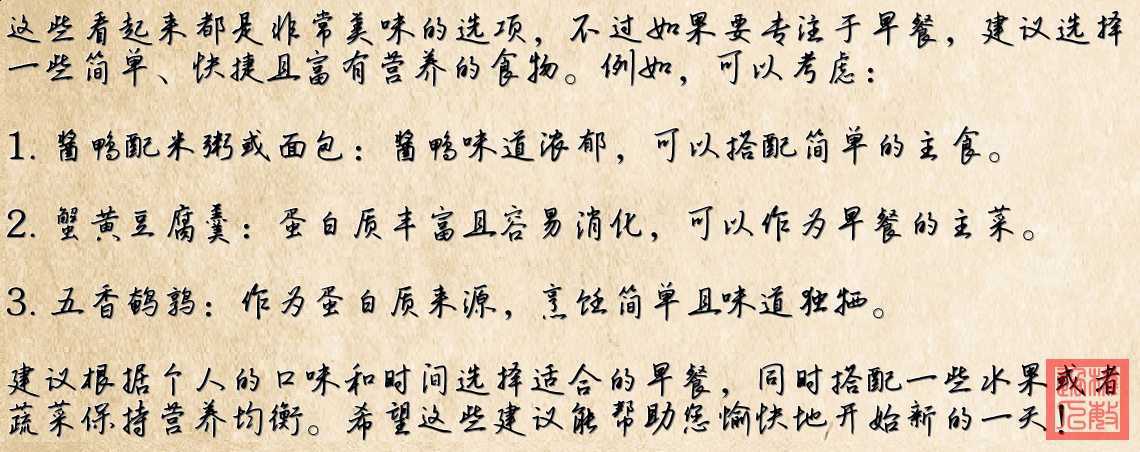 这些看起来都是非常美味的选项，不过如果要专注于早餐，建议选择
一些简单、快捷且富有营养的食物。例如，可以考虑：
1. 酱鸭配米粥或面包：酱鸭味道浓郁，可以搭配简单的主食。
2. 蟹黄豆腐羹：蛋白质丰富且容易消化，可以作为早餐的主菜。
3. 五香鹌鹑：作为蛋白质来源，烹饪简单且味道独特。
建议根据个人的口味和时间选择适合的早餐，同时搭配一些水果或者
蔬菜保持营养均衡。希望这些建议能帮助您愉快地开始新的一天！